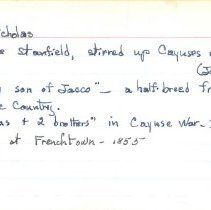 cholas
e Stanfield, stirred up Cayuses
son of Jacco" - a half-breed fr
c Country.
as + 2 brothers" in Cayuse War -
at Frenchtown - 1855